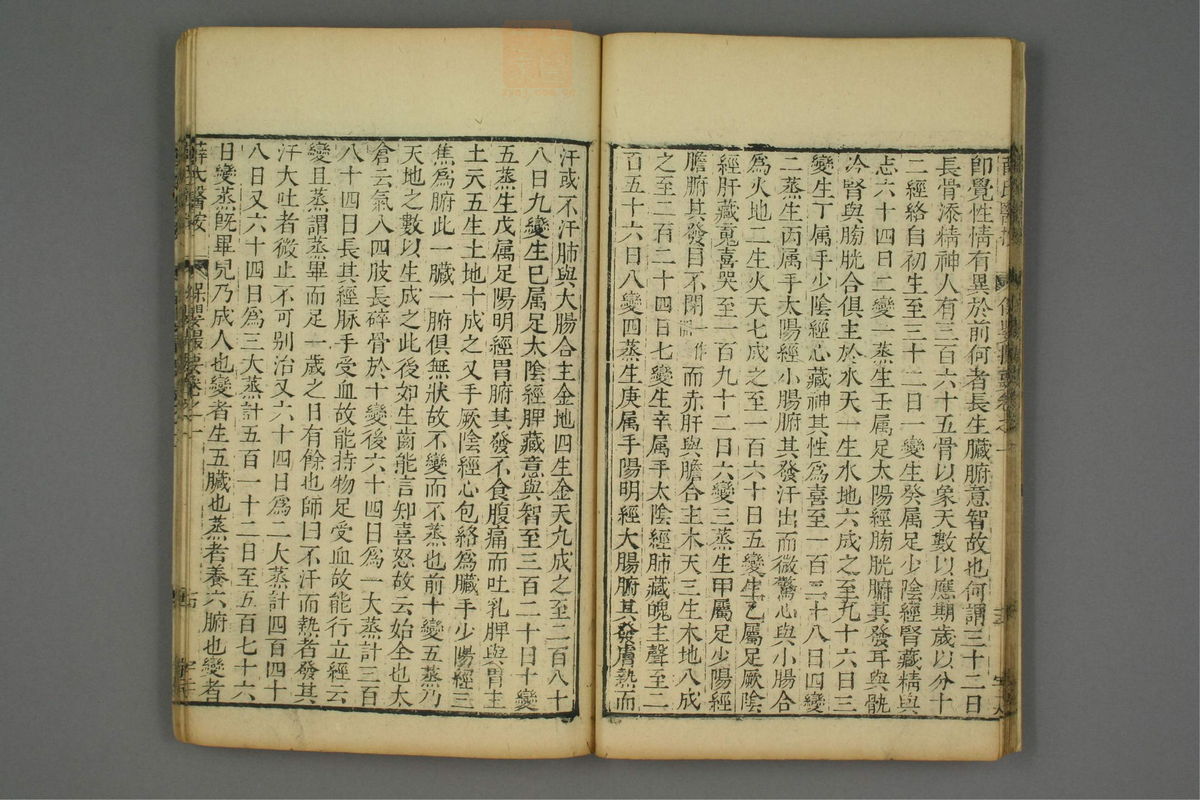 即覺性情有異於前何者長生臟腑意智故也何謂三十二日
長骨添精神人有三百六十五骨以象天數以應期歲以分十
二經絡自初生至三十二日一變生癸属足少陰經腎藏精與
志六十四日二變一蒸生壬属足太陽經膀胱腑其發耳與骩
冷腎與膀胱合俱主於水天一生水地六成之至九十六日三
變生丁属手少陰經心藏神其性爲喜至一百二十八日四變
二蒸生丙属手太陽經小腸腑其發汗出而微驚心與小腸合
爲火地二生火天七成之至一百六十日五變生乙屬足厥陰
經肝藏䰟喜哭至一百九十二日六變三蒸生甲屬足少陽經
膽腑其發目不閉一作而赤肝與膽合主木天三生木地八成
之至二百二十四日七變生辛属手太陰經肺藏魄主聲至二
百五十六日八變四蒸生庚属手陽明經大腸腑其發膚熱而
汗或不汗肺與大腸合主金地四生金天九成之至二百八十
八日九變生巳属足太陰經脾藏意與智至三百二十日十變
五蒸生戊属足陽明經胃腑其發不食腹痛而吐乳脾與胃主
土天五生土地十成之又手厥陰經心包絡爲臟手少陽經三
焦爲腑此一臟一腑俱無狀故不變而不蒸也前十變五蒸乃
天地之數以生成之此後如生齒能言知喜怒故云始全也太
倉云氣入四肢長碎骨於十變後六十四日爲一大蒸計三百
八十四日長其經脉手受血故能持物足受血故能行立經云
變且蒸謂蒸畢而足一歲之日有餘也師曰不汗而熱者發其
汗大吐者微止不可别治又六十四日爲二大蒸計四百四十
八日又六十四日爲三大蒸計五百一十二日至五百七十六
日變蒸既畢兒乃成人也變者生五臟也蒸者養六腑也變者
薛氏醫按 保嬰撮要卷之一